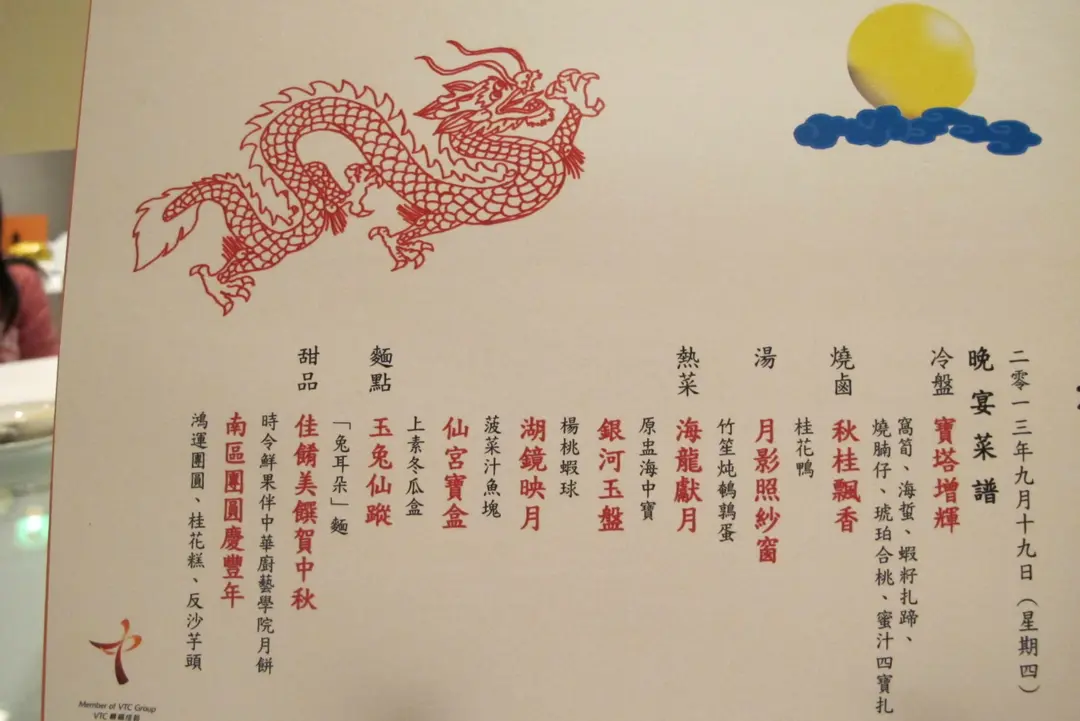 二零一三年九月十九日（星期四）
晚宴菜譜
冷盤 寶塔增輝
窩筍、海蜇、蝦籽扎蹄、
燒腩仔、琥珀合桃、蜜汁四寶扎
燒鹵 秋桂飄香
桂花鴨
湯 月影照紗窗
竹笙炖鵪鶉蛋
熱菜 海龍獻月
原盅海中寶
銀河玉盤
楊桃蝦球
湖鏡映月
菠菜汁魚塊
仙宮寶盒
上素冬瓜盒
麵點 玉兔仙蹤
「兔耳朵」麵
甜品 佳餚美饌賀中秋
時令鮮果伴中華廚藝學院月餅
南區團圓慶豐年
鴻運團圓、桂花糕、反沙芋頭
Member of VTC Group
VTC 機構成員